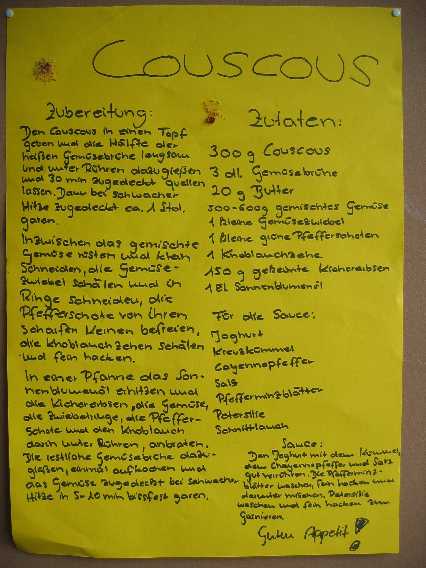 COUSCOUS
Zubereitung:
Den Couscous in einen Topf
geben und die Hälfte der
heißen Gemüsebrühe langsam
und unter Rühren dazugießen
und 30 min zugedeckt quellen
lassen. Dann bei schwacher
Hitze zugedeckt ca. 1 Std.
garen.
Inzwischen das gemischte
Gemüse rüsten und klein
Schneiden, die Gemüse-
zwiebel schälen und in
Ringe schneiden, die
Pfefferschote von ihren
Scharfen Kernen befreien,
die Knoblauchzehen schälen
und fein hacken.
In einer Pfanne das Son-
nenblumenöl erhitzen und
die Kichererbsen, die Gemüse,
die Zwiebelringe, die Pfeffer-
schote und den Knoblauch
darin unter Rühren, anbraten.
Die restliche Gemüsebrühe dazu-
gießen, einmal aufkochen und
das Gemüse zugedeckt bei schwacher
Hitze in 5-10 min bissfest garen.
Zutaten:
300 g Couscous
3 dl. Gemüsebrühe
20 g Butter
500-600g gemischtes Gemüse
1 kleine Gemüsezwiebel
1 kleine grüne Pfefferschoten
1 Knoblauchzehe
150 g gekeimte Kichererbsen
1 El Sonnenblumenöl
Für die Sauce:
Joghurt
Kreuzkümmel
Cayennepfeffer
Salz
Pfefferminzblätter
Petersilie
Schnittlauch
Sauce:
Den Joghurt mit dem Kümmel,
dem Chayennepfeffer und Salz
gut verrühren. Die Pfefferminz-
blätter waschen, fein hacken und
darunter mischen. Petersilie
waschen und fein hacken zum
Garnieren.
Guten Appetit!